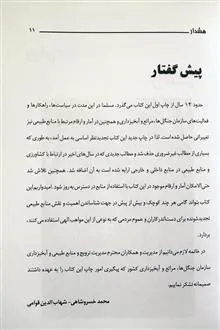 هشدار ۱۱
پیش گفتار
حدود ۱۴ سال از چاپ اول این کتاب می‌گذرد. مسلما در این مدت در سیاست‌ها، راهکارها و
فعالیت‌های سازمان جنگل‌ها، مراتع و آبخیزداری و همچنین در آمار و ارقام مرتبط با منابع طبیعی نیز
تغییراتی حاصل شده است. لذا در چاپ جدید این کتاب تجدیدنظر اساسی به عمل آمد، به طوری که
بسیاری از مطالب غیرضروری حذف شد و مطالب جدیدی که در سال‌های اخیر در ارتباط با کشاورزی
و منابع طبیعی در منابع داخلی و خارجی ارایه شده است به آن اضافه شد. همچنین تلاش شد
حتی‌الامکان آمار و ارقام موجود در این کتاب با استفاده از منابع در دسترس به‌روز شود. امیدواریم این
کتاب بتواند گامی هر چند کوچک و بیش از پیش در جهت شناساندن اهمیت و نقش منابع طبیعی
تجدیدشونده برای دست‌اندرکاران و عموم مردمی که به نوعی از این مواهب الهی استفاده می‌کنند،
بردارد.
در خاتمه لازم می‌دانیم از مدیریت و همکاران محترم مدیریت ترویج و منابع طبیعی و آبخیزداری
سازمان جنگل‌ها، مراتع و آبخیزداری کشور که پیگیری امور چاپ این کتاب را به عهده داشتند
صمیمانه تشکر نماییم.
محمد خسروشاهی - شهاب‌الدین قوامی